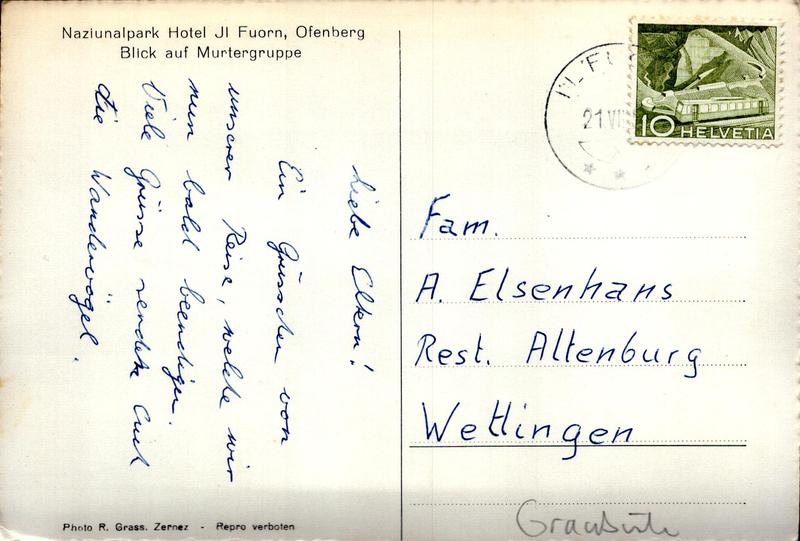 Naziunalpark Hotel Jl Fuorn, Ofenberg
Blick auf Murtergruppe
Liebe Eltern!
Ein Grüsschen von
unserer Reise, welche wir
nun bald beendigen.
Viele Grüsse sendete Euch
die Wandervögel.
Photo R. Grass. Zernez - Repro verboten
21.VI
10 HELVETIA
Fam.
A. Elsenhans
Rest. Altenburg
Wettingen